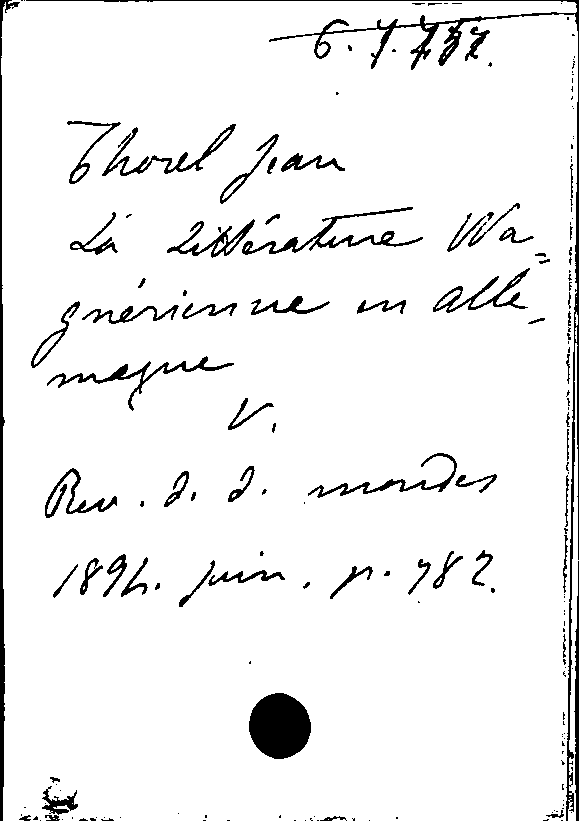 Thorel Jean
La Littérature Wa-
gnérienne en Alle-
magne
V.
Rev. d. d. mondes
1894. juin. p. 782.